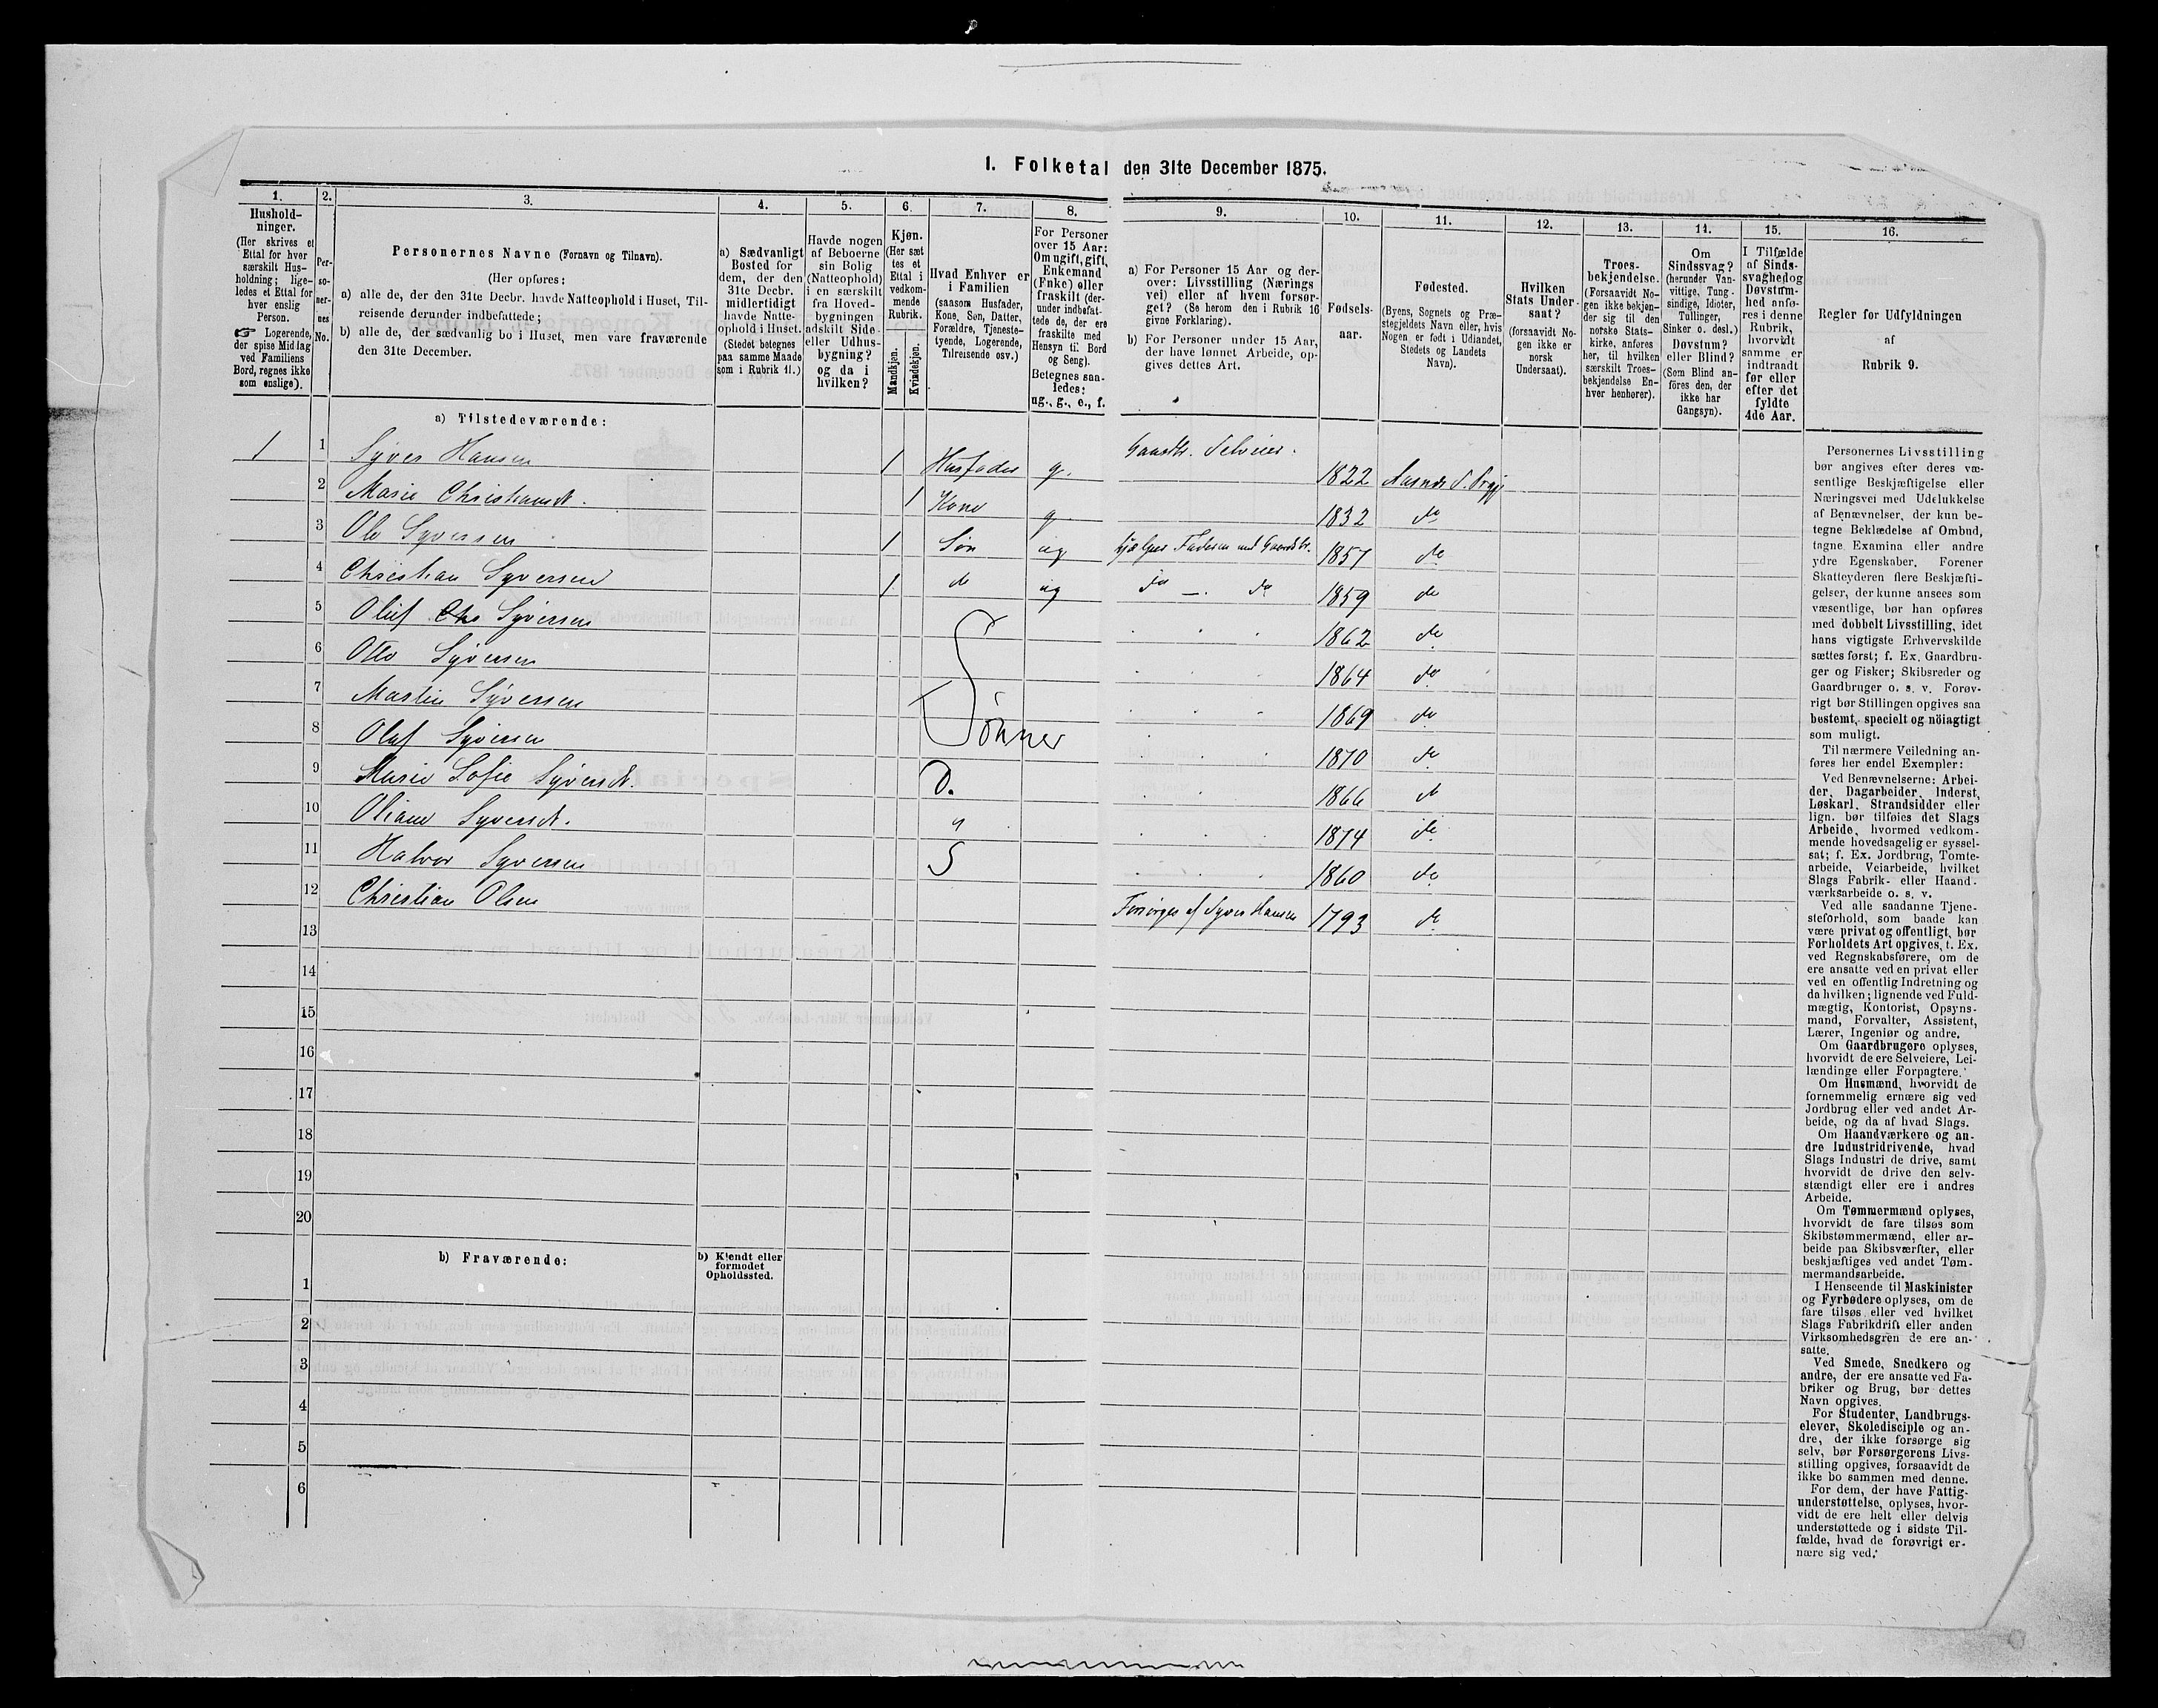 1. Folketal den 31te December 1875.
1. 2. 3. 4. 5. 6. 7. 8. 9. 10. 11. 12. 13. 14. 15. 16.
Hushold-
ninger.
(Her skrives et
Ettal for hver
særskilt Hus-
holdning; lige-
ledes et Ettal for
hver enslig
Person.
☞ Logerende,
der spise Middag
ved Familiens
Bord, regnes ikke
som enslige).
Per-
so-
ner-
nes
No.
Personernes Navne (Fornavn og Tilnavn).
(Her opføres:
a) alle de, der den 31te Decbr. havde Natteophold i Huset, Til-
reisende derunder indbefattede;
b) alle de, der sædvanlig bo i Huset, men vare fraværende
den 31te December.
a) Sædvanligt
Bosted for
dem, der den
31te Decbr.
midlertidigt
havde Natte-
ophold i Huset.
(Stedet betegnes
paa samme Maade
som i Rubrik 11.)
Havde nogen
af Beboerne
sin Bolig
(Natteophold)
i en særskilt
fra Hoved-
bygningen
adskilt Side-
eller Udhus-
bygning?
og da i
hvilken?
Kjøn.
(Her sæt-
tes et
Ettal i
vedkom-
mende
Rubrik.
Mandkjøn.
Kvindekjøn.
Hvad Enhver er
i Familien
(saasom Husfader,
Kone, Søn, Datter,
Forældre, Tjeneste-
tyende, Logerende,
Tilreisende osv.)
For Personer
over 15 Aar:
Om ugift, gift,
Enkemand
(Enke) eller
fraskilt (der-
under indbefat-
tede de, der ere
fraskilte med
Hensyn til Bord
og Seng).
Betegnes saa-
ledes:
ug., g., e., f.
a) For Personer 15 Aar og der-
over: Livsstilling (Nærings-
vei) eller af hvem forsør-
get? (Se herom den i Rubrik 16
givne Forklaring).
b) For Personer under 15 Aar,
der have lønnet Arbeide, op-
gives dettes Art.
Fødsels-
aar.
Fødested.
(Byens, Sognets og Præ-
stegjeldets Navn eller, hvis
Nogen er født i Udlandet,
Stedets og Landets
Navn).
Hvilken
Stats Under-
saat?
(forsaavidt No-
gen ikke er
norsk
Undersaat).
Troes-
bekjendelse.
(Forsaavidt No-
gen ikke bekjen-
der sig til den
norske Stats-
kirke, anføres
her, til hvilken
særskilt Troes-
bekjendelse En-
hver henhører).
Om
Sindssvag?
(herunder Van-
vittige, Tung-
sindige, Idioter,
Tullinger,
Sinker o. desl.)
Døvstum?
eller Blind?
(Som Blind an-
føres den, der
ikke har
Gangsyn).
I Tilfælde
af Sinds-
svaghed og
Døvstum-
hed anfø-
res i denne
Rubrik,
hvorvidt
samme er
indtraadt
før eller
efter det
fyldte
4de Aar.
Regler for Udfyldningen
af
Rubrik 9.
a) Tilstedeværende:
1 1 Syver Hansen 1 Husfader g. Gaardbr. Selveier. 1822
2 Marie Christiansdt. 1 Kone g 1832 do
3 Ole Syversen 1 Søn ug hjælper Faderen med Gaardsbr. 1857 do
4 Christian Syversen 1 do ug do — do 1859 do
5 Oluf Syversen 1862 do
6 Otto Syversen 1864 do
7 Martin Syversen 1869 do
8 Olaf Syversen Sønner 1870 do
9 Marie Sofie Syversdt. D. 1866 do
10 Oliane Syversdt. " 1874 do
11 Halvor Syversen S 1860 do
12 Christian Olsen Forsørges af Syver Hansen 1793 do
13
14
15
16
17
18
19
20
b) Fraværende: b) Kjendt eller
formodet
Opholdssted.
1
2
3
4
5
6
Personernes Livsstilling
bør angives efter deres væ-
sentlige Beskjæftigelse eller
Næringsvei med Udelukkelse
af Benævnelser, der kun be-
tegne Beklædelse af Ombud,
tagne Examina eller andre
ydre Egenskaber. Forener
Skatteyderen flere Beskjæfti-
gelser, der kunne ansees som
væsentlige, bør han opføres
med dobbelt Livsstilling, idet
hans vigtigste Erhvervskilde
sættes først; f. Ex. Gaardbru-
ger og Fisker; Skibsreder og
Gaardbruger o. s. v. Forøv-
rigt bør Stillingen opgives saa
bestemt, specielt og nöiagtigt
som muligt.
Til nærmere Veiledning an-
føres her endel Exempler:
Ved Benævnelserne: Arbei-
der, Dagarbeider, Inderst,
Løskarl, Strandsidder eller
lign. bør tilføies det Slags
Arbeide, hvormed vedkom-
mende hovedsagelig er syssel-
sat; f. Ex. Jordbrug, Tomte-
arbeide, Veiarbeide, hvilket
Slags Fabrik- eller Haand-
værksarbeide o. s. v.
Ved alle saadanne Tjene-
steforhold, som baade kan
være privat og offentligt, bør
Forholdets Art opgives, t. Ex.
ved Regnskabsførere, om de
ere ansatte ved en privat eller
ved en offentlig Indretning og
da hvilken; lignende ved Fuld-
mægtig, Kontorist, Opsyns-
mand, Forvalter, Assistent,
Lærer, Ingeniør og andre.
Om Gaardbrugere oplyses,
hvorvidt de ere Selveiere, Lei-
lændinge eller Forpagtere.
Om Husmænd, hvorvidt de
fornemmelig ernære sig ved
Jordbrug eller ved andet Ar-
beide, og da af hvad Slags.
Om Haandværkere og an-
dre Industridrivende, hvad
Slags Industri de drive, samt
hvorvidt de drive den selv-
stændigt eller ere i andres
Arbeide.
Om Tømmermænd oplyses,
hvorvidt de fare tilsøs som
Skibstømmermænd, eller ar-
beide paa Skibsværfter, eller
beskjæftiges ved andet Tøm-
mermandsarbeide.
I Henseende til Maskinister
og Fyrbødere oplyses, om de
fare tilsøs eller ved hvilket
Slags Fabrikdrift eller anden
Virksomhedsgren de ere an-
satte.
Ved Smede, Snedkere og
andre, der ere ansatte ved Fa-
briker og Brug, bør dettes
Navn opgives.
For Studenter, Landbrugs-
elever, Skoledisciple og an-
dre, der ikke forsørge sig
selv, bør Forsørgerens Livs-
stilling opgives, forsaavidt de
ikke bo sammen med denne.
For dem, der have Fattig-
understøttelse, oplyses, hvor-
vidt de ere helt eller delvis
understøttede og i sidste Til-
fælde, hvad de forøvrigt er-
nære sig ved.